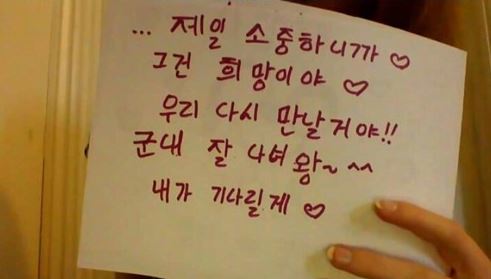 ... 제일 소중하니까 ♡
그건 희망이야 ♡
우리 다시 만날거야!!
군대 잘 다녀왕~ ^^
내가 기다릴게 ♡